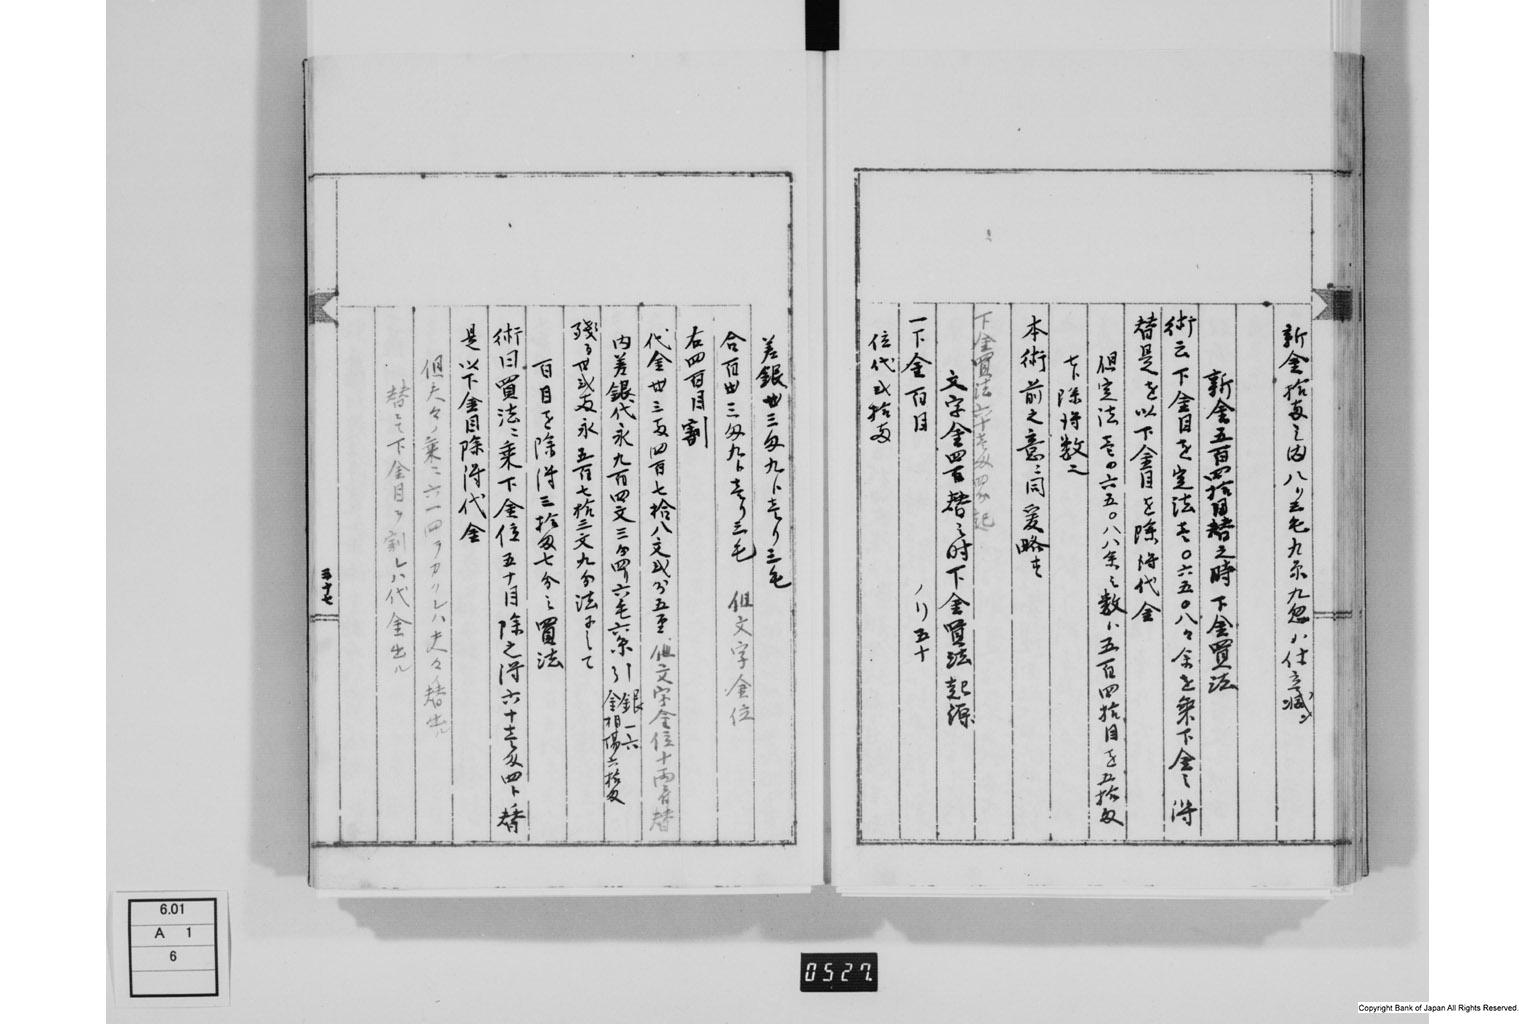 新金拾両之内八り三毛九糸九忽ハ仕立減ニ
新金五百四拾目替之時下金買法
術云下金目を定法壱〇六五〇八々余を乗下金ニ得
替是を以下金目を除得代金
但定法壱〇六五〇八八余之数ハ五百四拾目を五拾匁
下除得数之
本術前之意ニ同爰略す
下金買法六十壱匁四分起
文字金四百替之時下金買法起源
一下金百目 ノリ五十
位代弐拾両
差銀卅三匁九分壱り三毛
合百卅三匁九分壱り三毛 但文字金位
右四百目割
代金卅三両四百七拾八文弐分五厘 但文字金位十両替
内差銀代永九百四文三分四り六毛六糸引 銀一六 金相場六拾匁
残る卅弐両永五百七拾三文九分法にして
百目を除得三拾匁七分之買法
術曰買法ニ乗下金位五十目除之得六十壱匁四分替
是以下金目除得代金
但夫々ノ乗ニ六一四ヲカクレハ夫々ノ替出ル
替ニて下金目ヲ割レハ代金出ル
五十七
6.01
A 1
6
0527.
Copyright Bank of Japan All Rights Reserved.